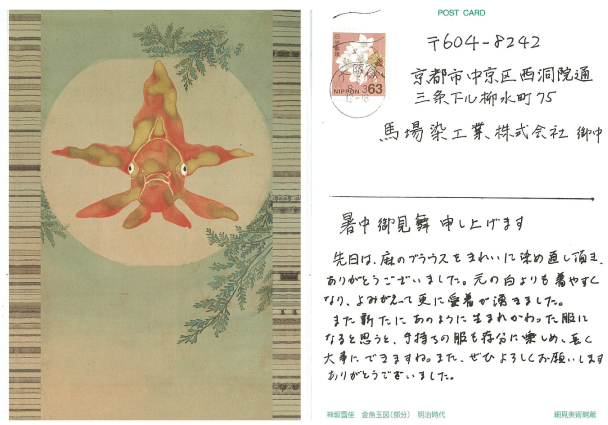 POST CARD
日本郵便
NIPPON 63
〒604-8242
京都市中京区西洞院通
三条下ル柳水町75
馬場染工業株式会社 御中
暑中御見舞 申し上げます
先日は、麻のブラウスをきれいに染め直し頂き、
ありがとうございました。元の白よりも着やすく
なり、よみがえって更に愛着が湧きました。
また新たにあのように生まれかわった服に
なると思うと、手持ちの服を存分に楽しめ、長く
大事にできますね。また、ぜひよろしくお願いします
ありがとうございました。
神坂雪佳 金魚玉図(部分) 明治時代
細見美術館蔵